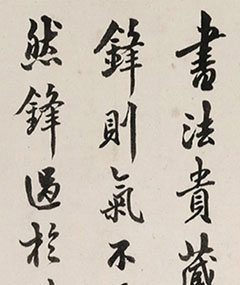 書法貴藏
鋒則氣不
然鋒過於